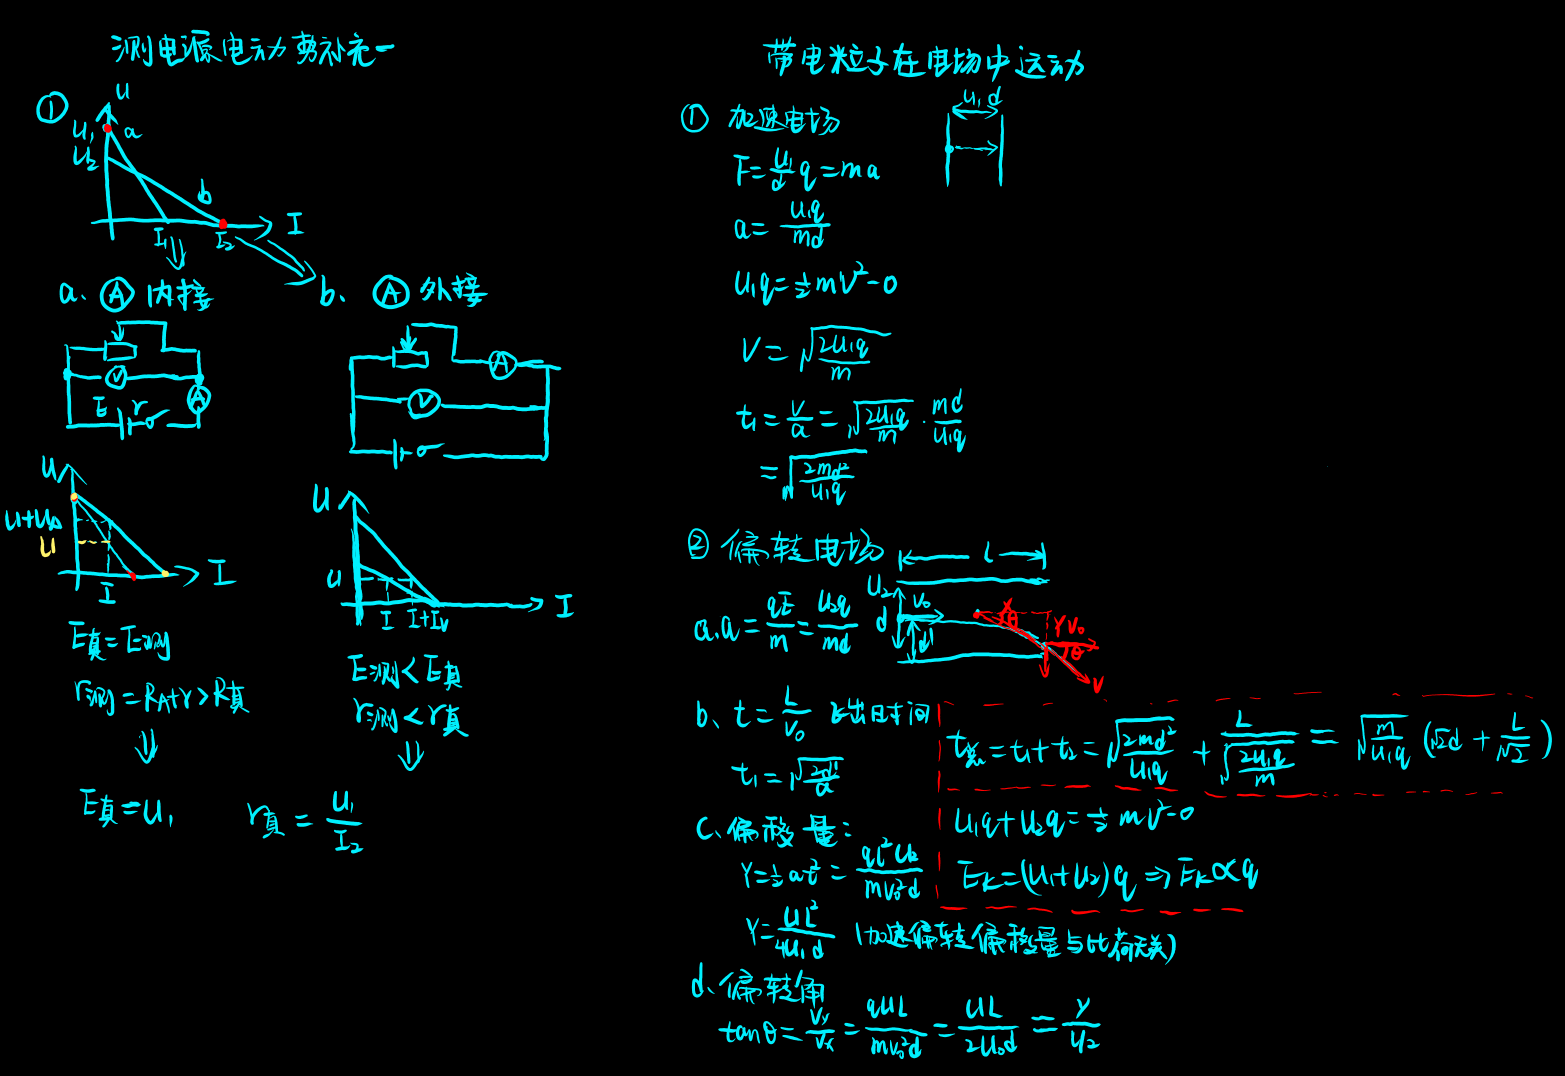 测电源电动势补充一
①
U
U₁ a
U₂
b
I
I₁ I₂
a、Ⓐ内接
b、Ⓐ外接
V
A
E r
A
V
U
U+U_A
U
I
I
E真=E测
r测=R_A+r>R真
U
U
I I+I_V
I
E测<E真
r测<r真
E真=U₁
r真=U₁/I₂
带电粒子在电场中运动
① 加速电场
U₁ d
F=U₁/d q=ma
a=U₁q/md
U₁q=½mV²-0
V=√(2U₁q/m)
t₁=V/a=√(2U₁q/m)·md/U₁q
=√(2md²/U₁q)
② 偏转电场
L
U₂
d
V₀
d'
θ
Y V₀
θ
V
a.a=qE/m=U₂q/md
b、t=L/V₀ 飞出时间
t₁=√(2d'/a)
t总=t₁+t₂=√(2md²/U₁q)+L/√(2U₁q/m)=√(m/U₁q)(√2d+L/√2)
U₁q+U₂q=½mV²-0
E_k=(U₁+U₂)q⇒E_k∝q
c、偏移量:
Y=½at²=qL²U₂/mV₀²d
Y=UL²/4U₁d (加速偏转偏移量与比荷无关)
d、偏转角
tanθ=V_y/V_x=qUL/mV₀²d=UL/2U₀d=Y/L/2